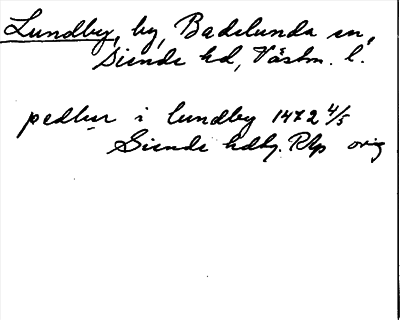 Lundby, by, Badelunda sn,
Siende hd, Västm. l.
pedhur i lundby 1472 4/5
Siende hdbj. Rlp orig